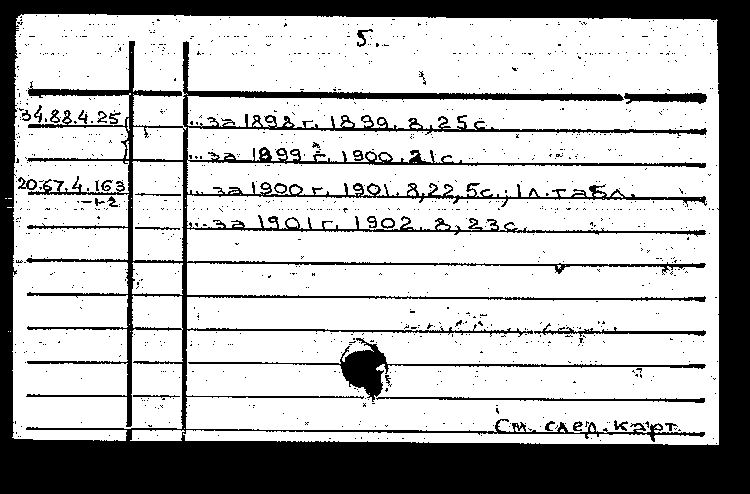 5.
34.88.4.25 ...за 1898 г. 1899. 8, 25 с.
...за 1899 г. 1900. 21 с.
20.67.4.163 ...за 1900 г. 1901. 8, 22, 5 с.; 1 л. табл.
-1-2
...за 1901 г. 1902. 8, 23 с.
См. след. карт.